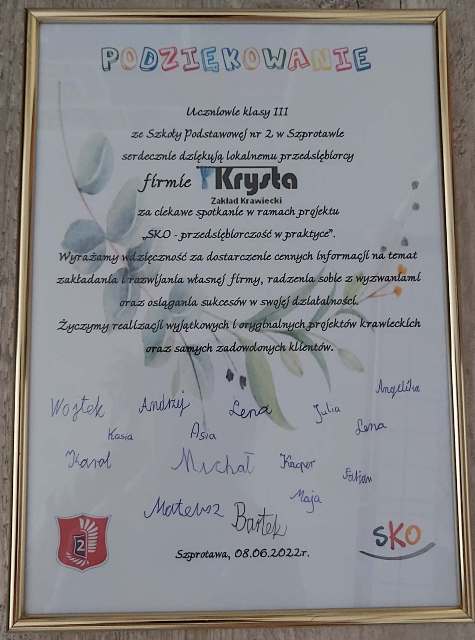 PODZIĘKOWANIE
Uczniowie klasy III
ze Szkoły Podstawowej nr 2 w Szprotawie
serdecznie dziękują lokalnemu przedsiębiorcy
firmie Krysta
Zakład Krawiecki
za ciekawe spotkanie w ramach projektu
„SKO - przedsiębiorczość w praktyce".
Wyrażamy wdzięczność za dostarczenie cennych informacji na temat
zakładania i rozwijania własnej firmy, radzenia sobie z wyzwaniami
oraz osiągania sukcesów w swojej działalności.
Życzymy realizacji wyjątkowych i oryginalnych projektów krawieckich
oraz samych zadowolonych klientów.
Angelika
Wojtek Andrzej Lena Julia
Kasia Asia Lena
Karol Michał Kacper Fabian
Maja
Mateusz Bartek
2
SKO
Szprotawa, 08.06.2022r.